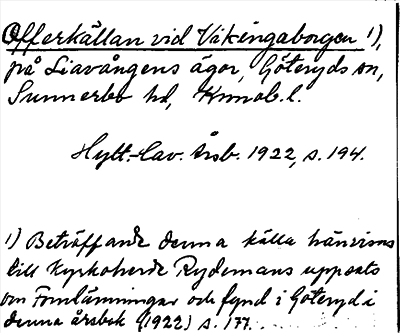 Offerkällan vid Vikingaborgen 1),
på Liavångens ägor, Göteryds sn,
Sunnerbo hd, Kronob. l.
Hylt.-Cav. Årsb. 1922, s. 194.
1) Beträffande denna källa hänvisas
till Kyrkoherde Rydemans uppsats
om Fornlämningar och fynd i Göteryd i
denna årsbok (1922) s. 177.